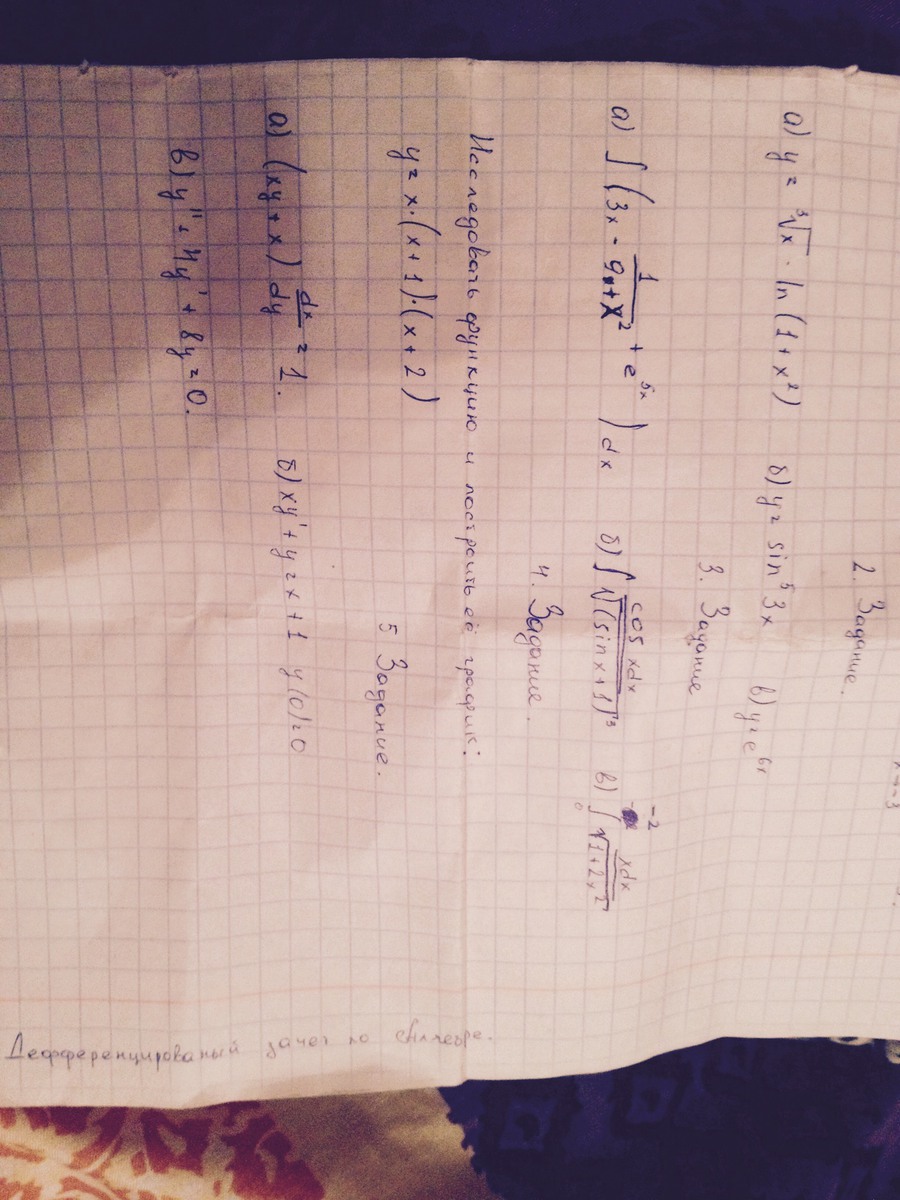 2. Задание.
а) y = ∛x · ln(1 + x²) б) y = sin⁵3x в) y = e⁶ˣ
3. Задание
а) ∫(3x - 1/(9x + x²) + e⁵ˣ) dx б) ∫ cos xdx/√(sin x + 1)³ в) ∫₀⁻² xdx/√(1 + 2x²)
4. Задание.
Исследовать функцию и построить её график:
y = x·(x + 1)·(x + 2)
5 Задание.
а) (xy + x) dx/dy = 1. б) xy' + y = x + 1 y(0) = 0
в) y'' + 4y' + 8y = 0.
Дефференцированый зачет по